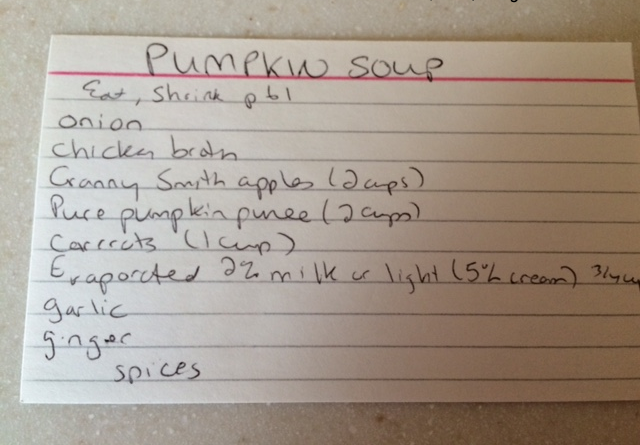 PUMPKIN SOUP
Eat, Shrink p 61
onion
chicken broth
Granny Smith apples (2 cups)
Pure pumpkin puree (2 cups)
Carrots (1 cup)
Evaporated 2% milk or light (5% cream) 3/4 cu
garlic
ginger
spices